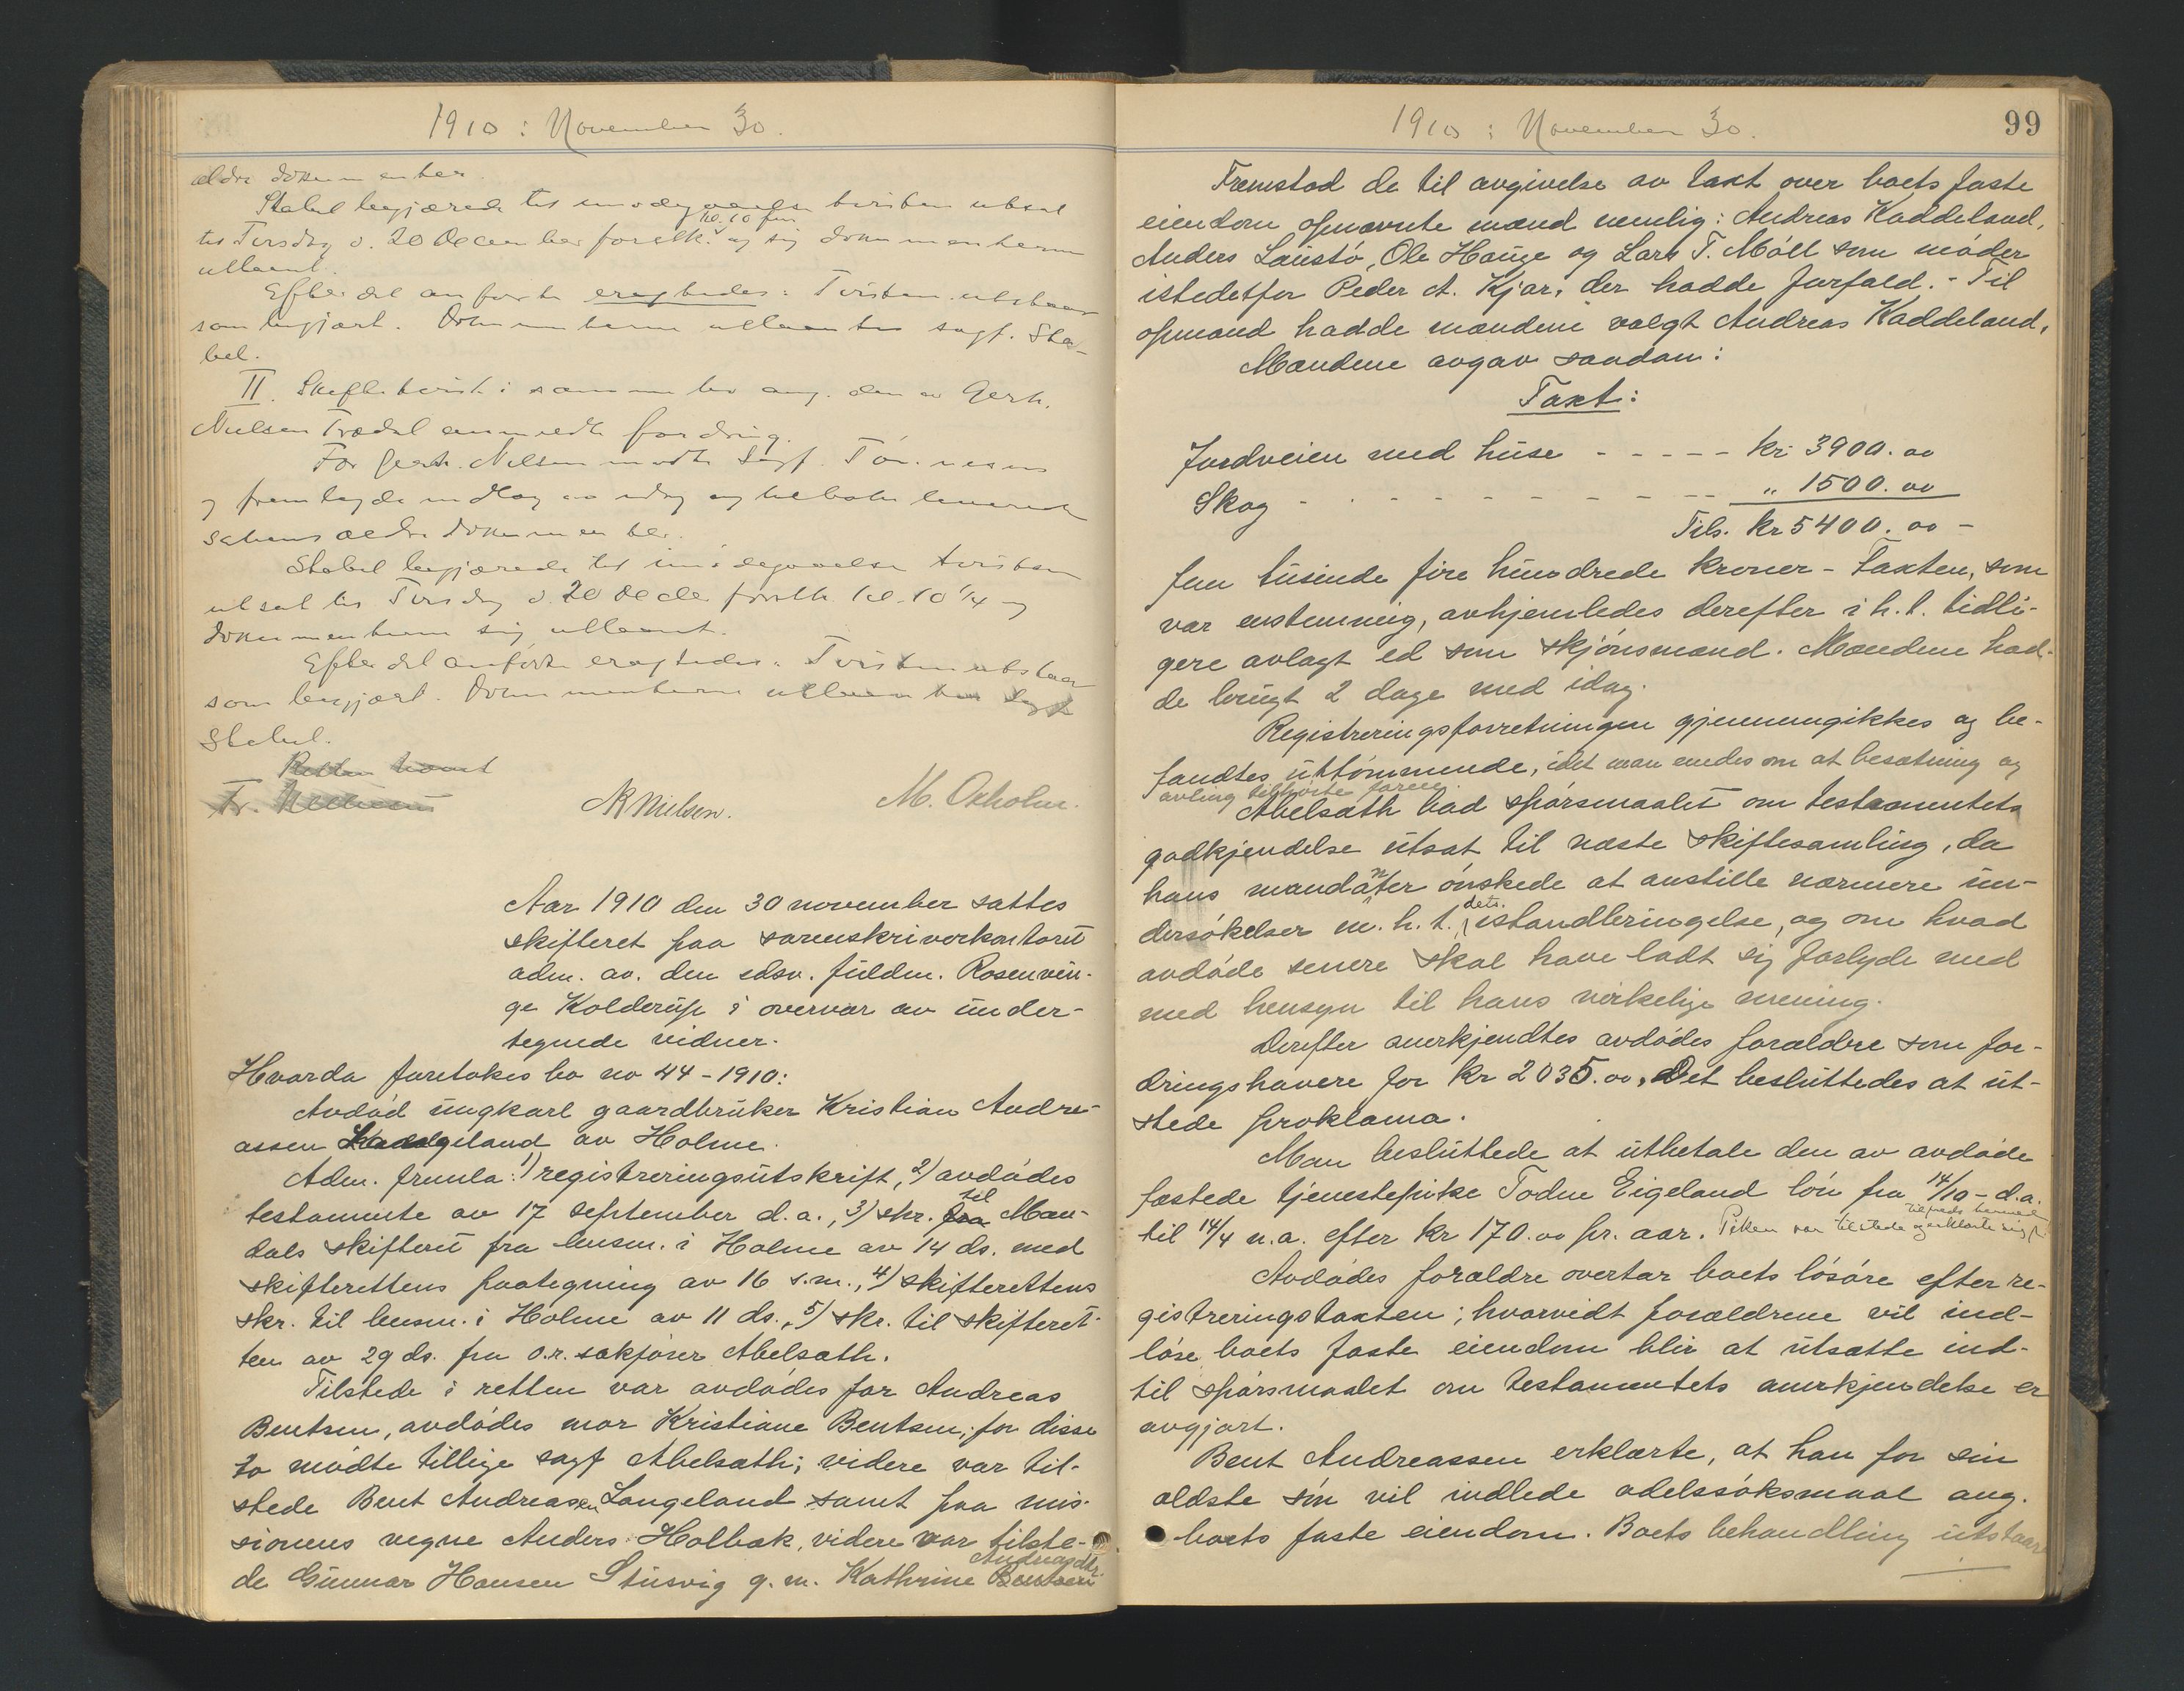 1910 : November 30.
ældre dokumenter.
Stabel begjærede til imødegaaelse tvisten utsat
kl. 10 fm
til Tirsdag d. 20 December førstk. og sig dokumenterne
utlaant.
Efter det anførte eragtedes: Tvisten utstaar
som begjært. Dokumenterne utlaantes sagf. Sta-
bel.
II. Skiftetvist i samme bo ang. den av Gerh.
Nielsen Trædal anmeldte fordring.
For Gerh. Nilsen mødte Sagf. Tønnesen
og fremlagde indlæg av idag og tilbakeleverede
sakens ældre dokumenter.
Stabel begjærede til imødegaaelse tvisten
utsat til Tirsdag d. 20 Decbr førstk. kl. 10 1/4 og
dokumenterne sig utlaant.
Efter det anførte eragtedes: Tvisten utstaar
som begjært. Dokumenterne utlaantes sagf.
Stabel.
Retten hævet
NR Nielsen. M. Oxholm.
Aar 1910 den 30 november sattes
skifteret paa sorenskriverkontoret
adm. av. den edsv. fuldm. Rosenvin-
ge Kolderup i overvær av under-
tegnede vidner.
Hvorda foretokes bo no 44 - 1910:
Avdød ungkarl gaardbruker Kristian Andre-
assen Langeland av Holme.
Adm. fremla: 1) registreringsutskrift, 2) avdødes
testamente av 17 september d.a., 3) skr. fra til Man-
dals skifteret fra lensm. i Holme av 14 ds. med
skifterettens paategning av 16 s.m., 4) skifterettens
skr. til lensm. i Holme av 11 ds., 5) skr. til skifteret-
ten av 29 ds. fra o.r. sakfører Abelsæth.
Tilstede i retten var avdødes far Andreas
Bentsen, avdødes mor Kristiane Bentsen, for disse
to mødte tillige sagf Abelsæth; videre var til-
stede Bent Andreasen Langeland samt paa mis-
sionens vegne Anders Holbæk, videre var tilste-
Andreasdtr.
de Gunnar Hansen Stusvig g. m. Kathrine Bentsen
1910 : November 30.
99
Fremstod de til avgivelse av taxt over boets faste
eiendom opnævnte mænd nemlig: Andreas Kaddeland,
Anders Laustø, Ole Hauge og Lars T. Møll som møder
istedetfor Peder A. Kjær, der hadde forfald. - Til
opmand hadde mændene valgt Andreas Kaddeland.
Mændene avgav saadan:
Taxt:
Jordveien med huse - - - - - kr. 3900.00
Skog - - - - - - - - - - „ 1500.00
Tils. kr 5400.00 -
fem tusinde fire hundrede kroner - Taxten, som
var enstemmig, avhjemledes derefter i h. t. tidli-
gere avlagt ed som skjønsmænd. Mændene had-
de brugt 2 dage med idag.
Registreringsforretningen gjennemgikkes og be-
fandtes uttømmende, idet man enedes om at besætning og
avling tilhørte faren.
Abelsæth bad spørsmaalet om testamentets
godkjendelse utsat til næste skiftesamling, da
hans mandanter ønskede at anstille nærmere un-
dersøkelser m. h. t. dets istandbringelse, og om hvad
avdøde senere skal have ladt sig forlyde med
med hensyn til hans virkelige mening.
Derefter anerkjendtes avdødes forældre som for-
dringshavere for kr 2035.00. Det besluttedes at ut-
stede proklama.
Man besluttede at utbetale den av avdøde
fæstede tjenestepike Todne Eigeland løn fra 14/10 - d.a.
til 14/4 n.a. efter kr 170.00 pr. aar. Piken var tilstede og erklærte sig tilfreds hermed
Avdødes forældre overtar boets løsøre efter re-
gistreringstaxten; hvorvidt forældrene vil ind-
løse boets faste eiendom blir at utsætte ind-
til spørsmaalet om testamentets anerkjendelse er
avgjort.
Bent Andreassen erklærte, at han for sin
ældste søn vil indlede odelssøksmaal ang.
boets faste eiendom. Boets behandling utstaar